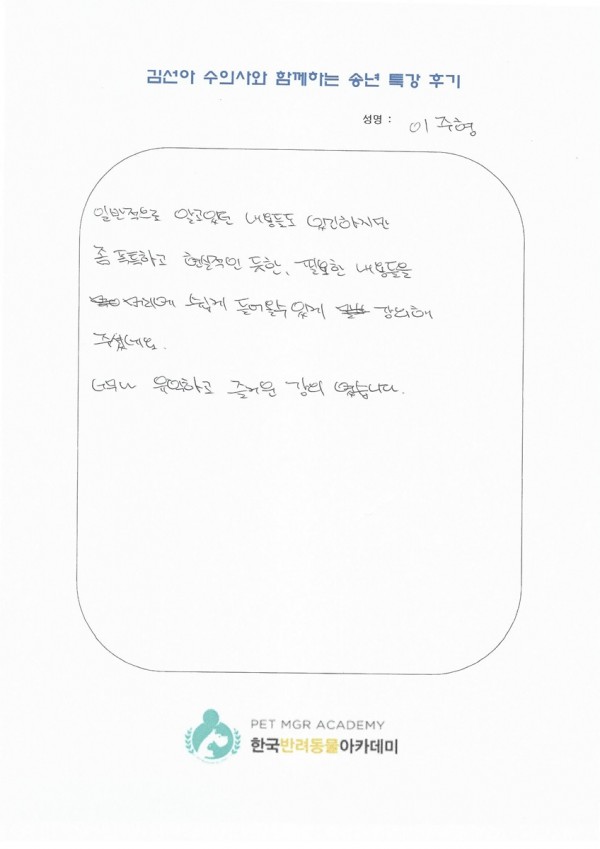 김선아 수의사와 함께하는 송년 특강 후기
성명 : 이주형
일반적으로 알고있던 내용들도 있긴하지만
좀 독특하고 현실적인 듯한, 필요한 내용들을
머리에 쉽게 들어올수있게 강의해
주셨네요.
너무나 유익하고 즐거운 강의 였습니다.
PET MGR ACADEMY
한국반려동물아카데미